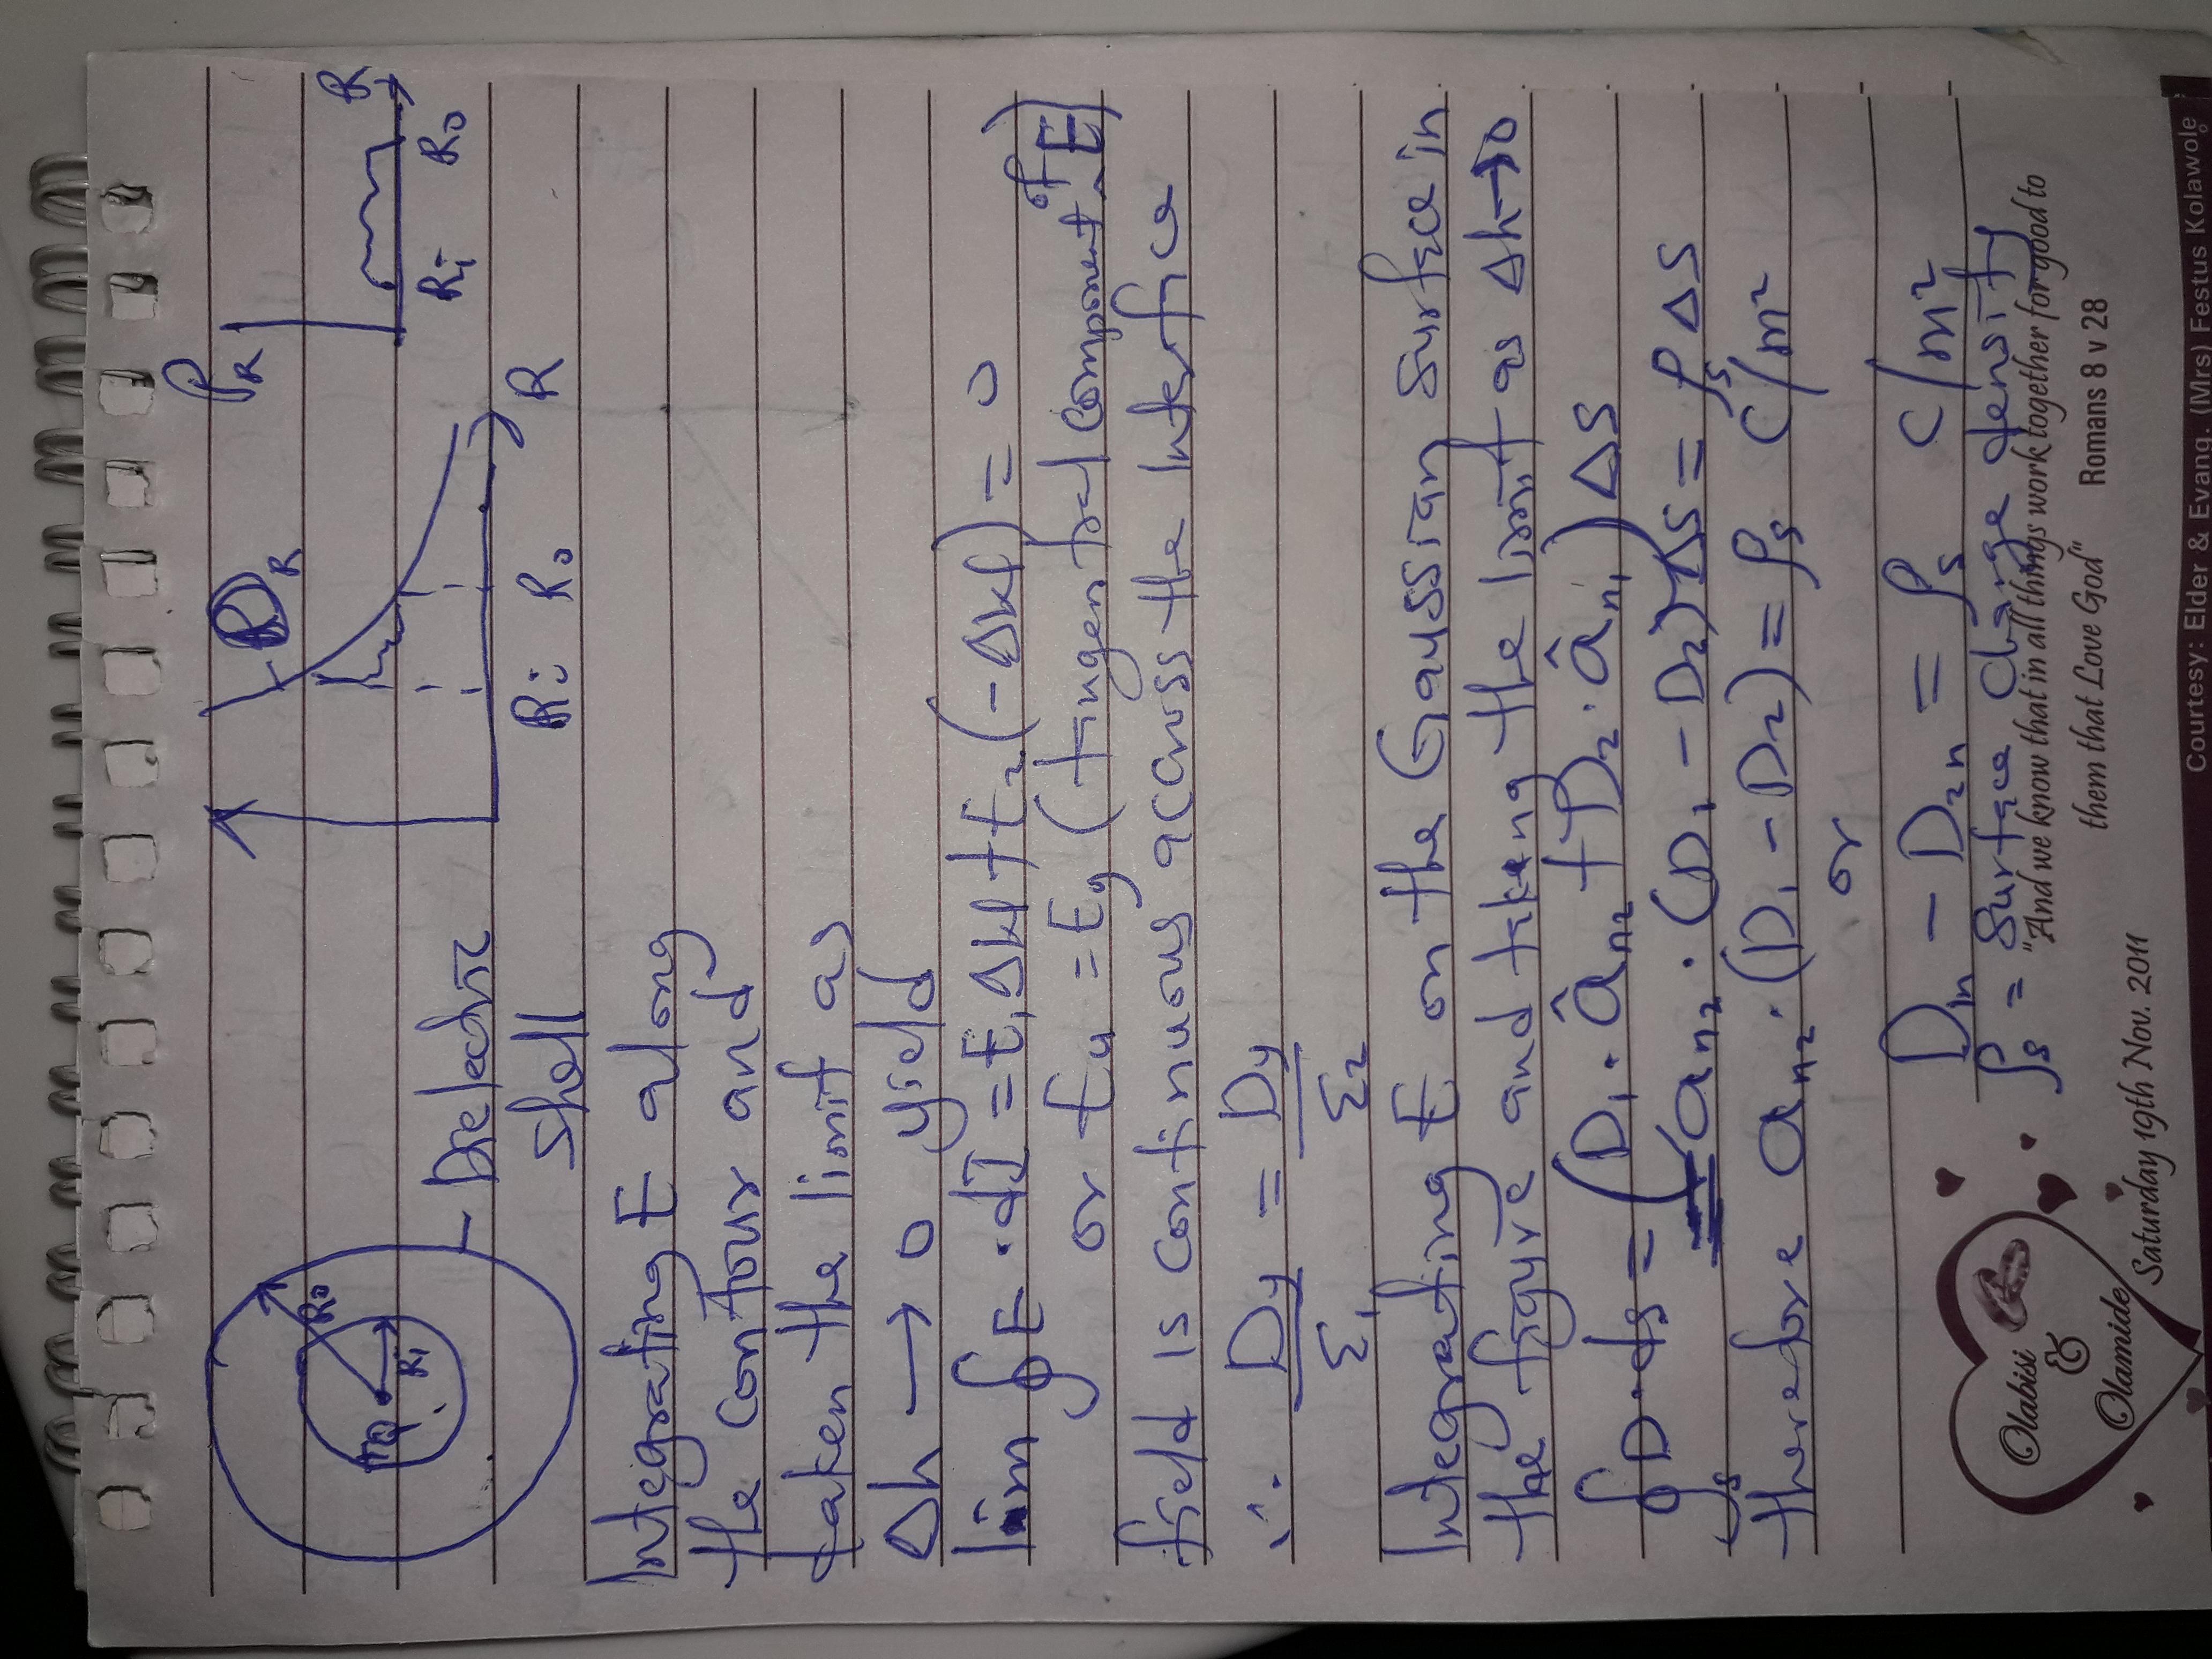 P_R
D_R
R
Ri R₀
R
Ri R₀
R₀
Ri
Dielectric
Shell
Integrating E along
the contour and
taken the limit as
Δh → 0 yield
lim ∮E · dl = E₁ Δw + E₂ (-Δw) = 0
or = (tingental component of E)
field is continuous accross the interface
∴ D / ε₁ = D / ε₂
Integrating E on the Gaussian Surface in
the figure and taking the limit as Δh→0
∮D·ds = (D₁ · â_n₂ + D₂ · â_n₁) ΔS
s = a_n₂ · (D₁ - D₂) ΔS = ρ_s ΔS
therefore a_n₂ · (D₁ - D₂) = ρ_s C/m²
or
D₁n - D₂n = ρ_s C/m²
ρ_s = Surface charge density
Olabisi
&
Olamide
Saturday 19th Nov. 2011
"And we know that in all things work together for good to
them that Love God" Romans 8 v 28
Courtesy: Elder & Evang. (Mrs) Festus Kolawole